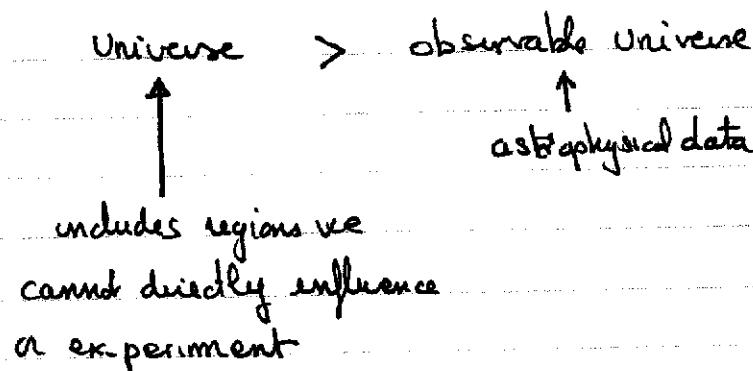 Universe > observable Universe
astrophysical data
includes regions we
cannot directly influence
or experiment